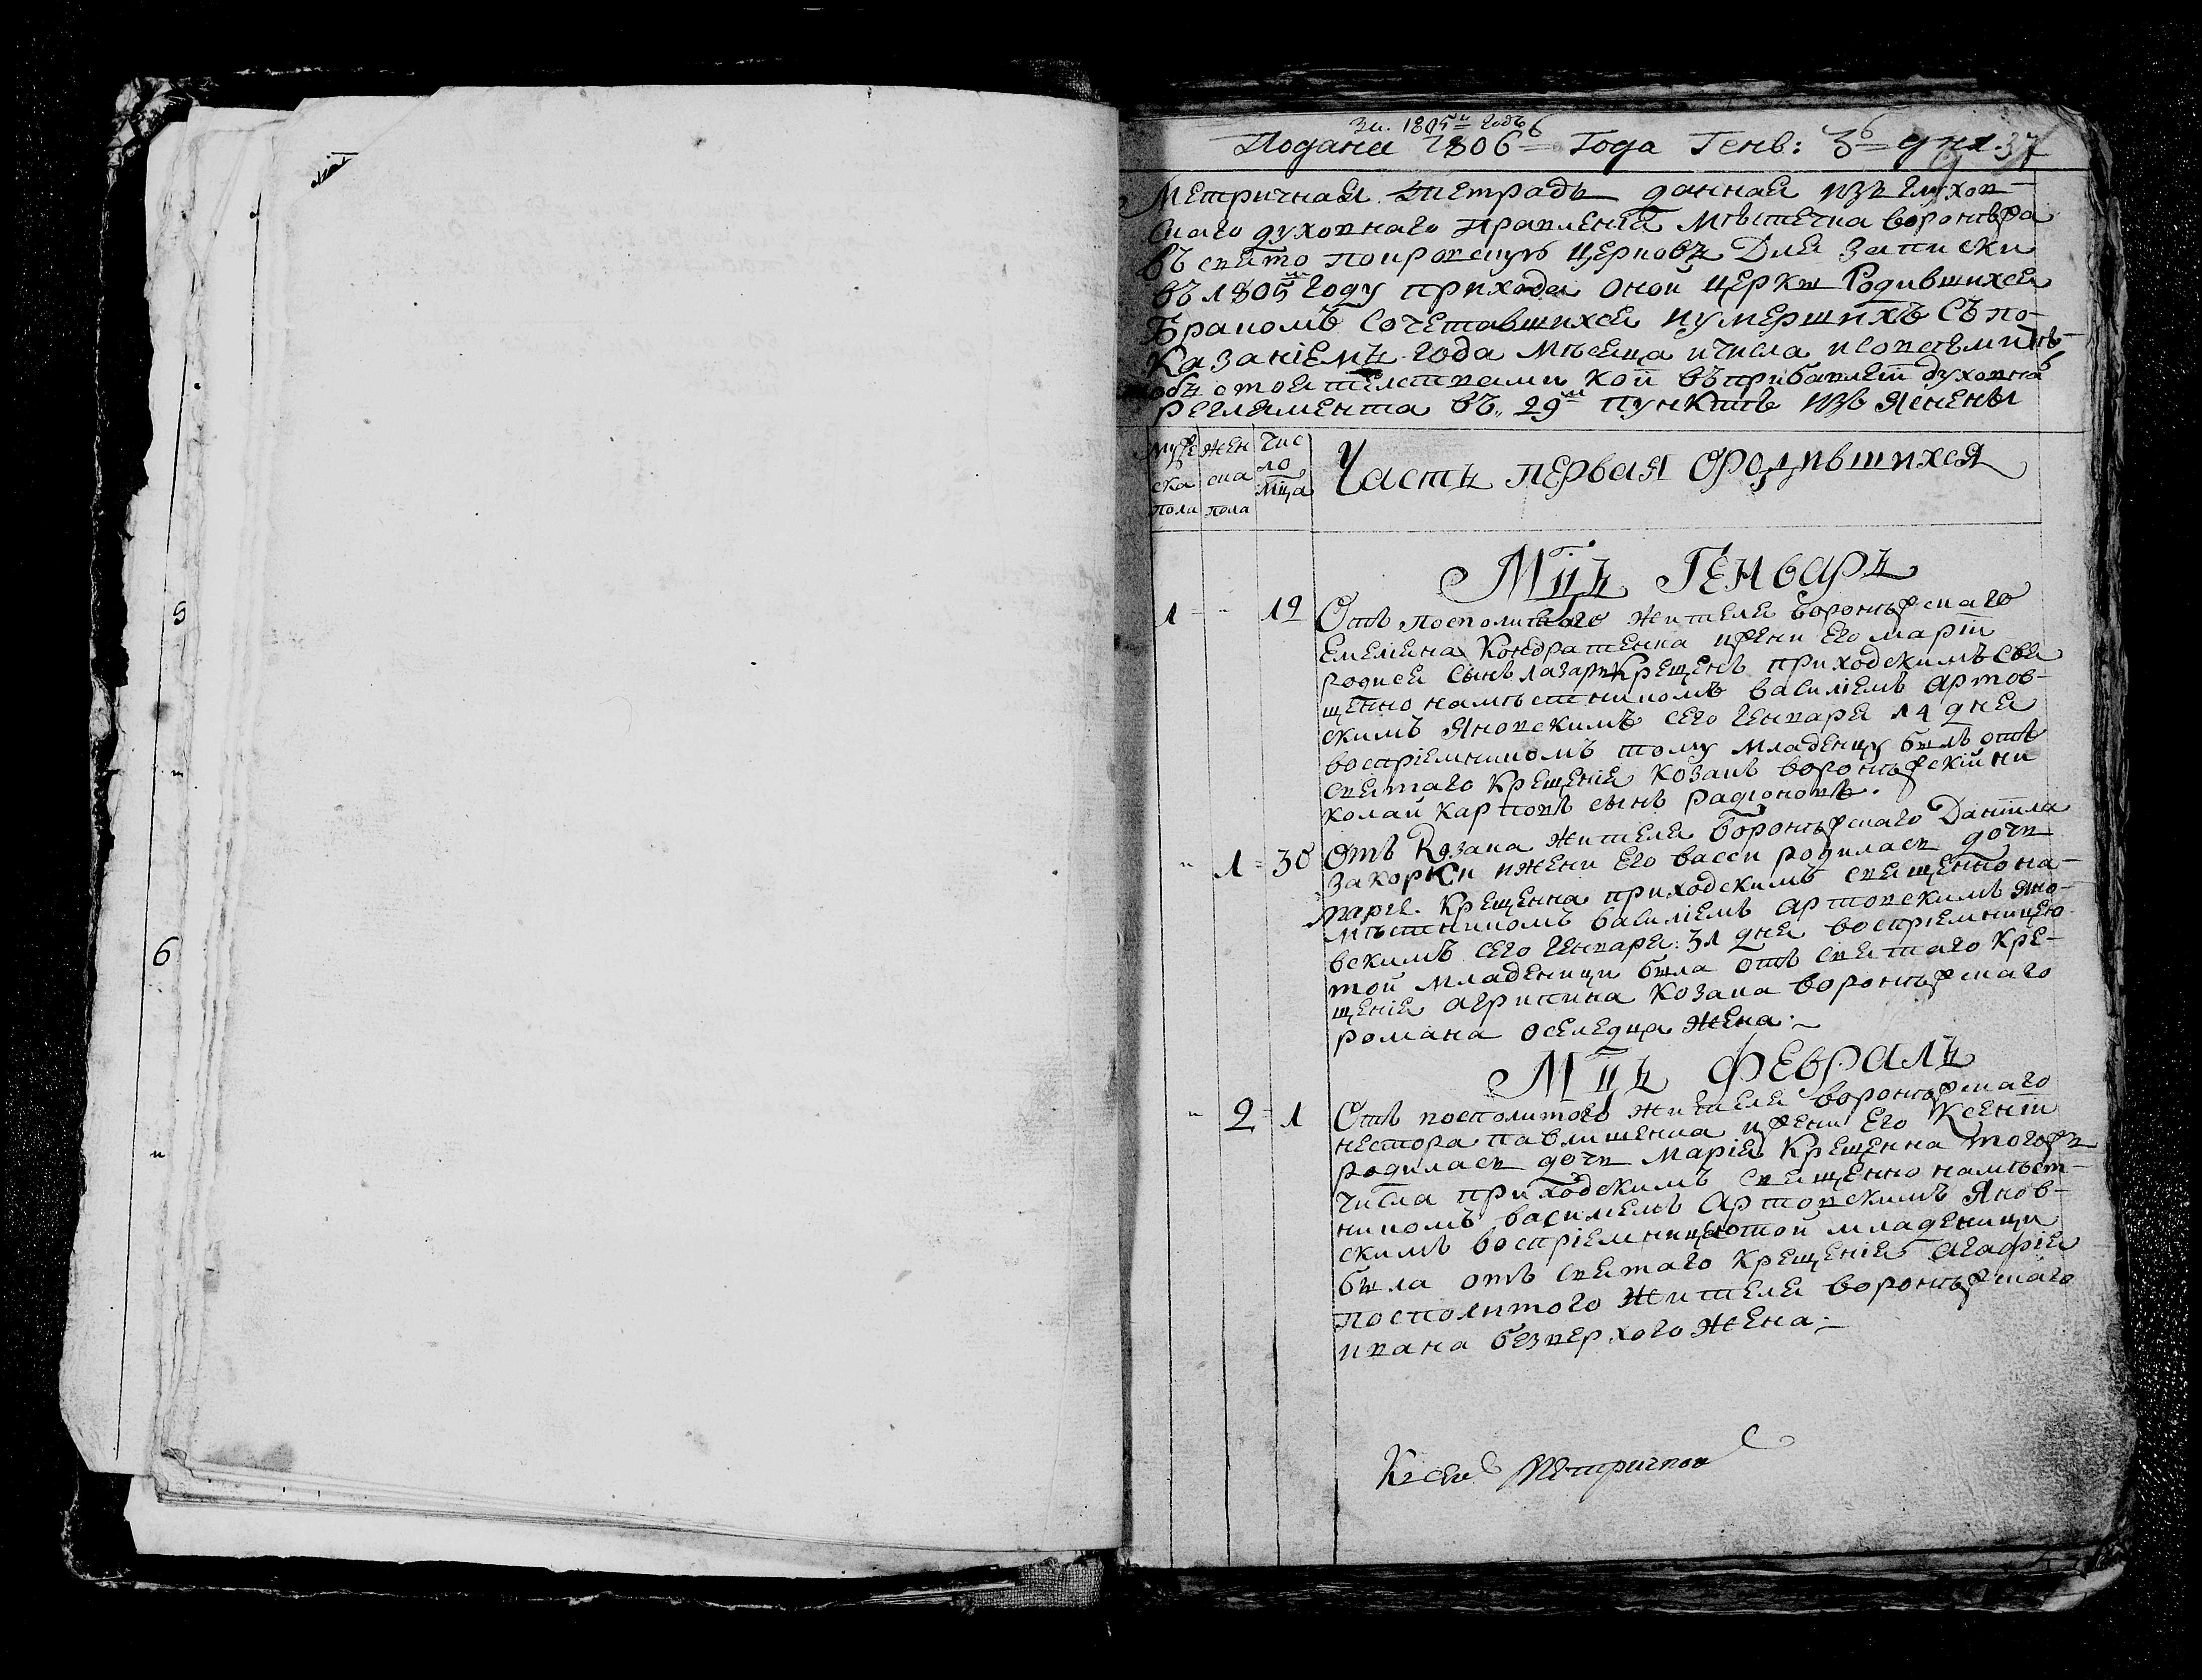 За 1805й годъ
Подана 1806 Года Генв: 3 дня 37
Метричная тетрадь данная изъ глухов-
скаго духовнаго правленїя мѣстечка воронѣжа
въ свято покровскую церковь Для записки
въ 1805м году прихода оной церкви Родившихся
Бракомъ сочетавшихся и умершихъ Съ по-
казанїемъ года мѣсяца и числа и со всѣми тѣ-
обстоятелствами кои въ прибавленїи духовна
регламента въ 29м пунктѣ изъяснены
муже жен Чис
ска ска ло
пола пола мца
Часть первая О родившихся
Мцъ Генварь
1 " 12 Отъ посполитого жителя воронѣжскаго
Емелїана Кондратенка и жени его марїи
родися Сынъ лазарь Крещенъ приходскимъ свя
щенно намѣстникомъ василїемъ артов-
скимъ Яновскимъ сего генваря 14 дня
воспрїемникомъ тому младенцу былъ отъ
святаго крещенїя козакъ воронѣжскїй ни
колай карповъ сынъ радїоновъ.
" 1 30 Отъ Козака жителя воронѣжскаго Данїила
Закорки и жени его васси родилась дочь
марїя Крещенна приходскимъ священно на-
мѣстникомъ василїемъ артовскимъ яно-
вскимъ сего генваря 31 дня воспрїемницею
той младеници была отъ святаго кре-
щенїя агрипина козака воронѣжскаго
романа оселедца жена.
Мцъ Февраль
" 2 1 Отъ посполитого жителя воронѣжскаго
нестора павлишенка и жени его Ксенїи
родилась дочь Марїя Крещенна тогожъ
числа приходскимъ священно намѣст-
никомъ василїемъ артовскимъ Янов-
скимъ воспрїемницею той младеници
была отъ святаго крещенїя агафїя
посполитого жителя воронѣжскаго
ивана безверхого жена.
К сей Метрической
5
6